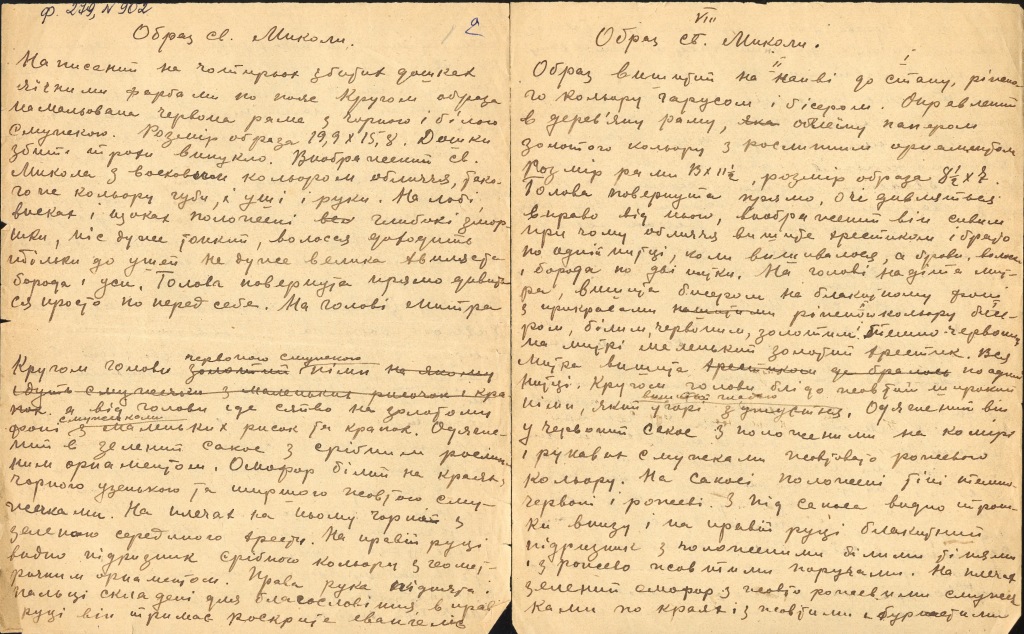 ф. 279, N 902
9
Образ св. Миколи.
Написаний на чотирьох збитих дошках
ліжними фарбами по пояс Кругом образа
намальована червона рама з чорною і білою
смужкою. Розмір образа 19,9 х 15,8. Дошки
збиті трохи випукло. Виображений св.
Микола з восковим кольором обличчя, тако-
го же кольору губи, і уші і руки. На лобі
висках і щоках положені глибокі змор
шки, ніс дуже тонкий, волосся доходить
тільки до ушей не дуже велика
борода і уси. Голова повернута прямо дивить
ся просто по перед себе. На голові митра
червоного смужкою
Кругом голови золотий німб на якому
ідуть смужечки з маленьких рисочок і кра
пок. а від голови іде сяйво на золотому
смужками
фоні з маленьких рисок та крапок. Одягне-
ний в зелений сакос з срібним рослин
ним орнаментом. Омофор білий на краях з
чорною узенькою та ширшою жовтою сму-
жечками. На плечах на ньому чорний з
зеленою серединою хрести. На правій руці
видно підризник срібного кольору з геомет-
ричним орнаментом. Права рука піднята.
пальці складені для благословіння, в прав
руці він тримає розкрите евангеліє
VIII
Образ св. Миколи.
Образ вишитий на канві до стану, різно-
го кольору гарусом і бісером. Оправлений
в дерев'яну раму, яка обклеїну папером
золотого кольору з рослинним орнаментом
Розмір рами 13 х 11½, розмір образа 8½ х 7.
Голова повернута прямо, очі дивляться
вправо від нього, виображений він сивим
при чому обличчя вишите хрестиком і брато
по одній нитці, коли вишивалося, а брови, волос
і борода по дві нитки. На голові надіта мит-
ра, вишита бисером на блакитному фоні
з прикрасами різного кольору бісе-
ром, білим, червоним, золотим і темно-червоним
на митрі маленький золотий хрестик. Вся
митка вишита хрестиком де бралось по одній
нитці. Кругом голови блідо жовтий широкий
німб, який угорі з
Одягнений він
у червоний сакос з положеними на комірі
і рукавах смужками жовтого рожевого
кольору. На сакосі положені тіні темно-
червоні і рожеві. З під сакоса видно трош-
ки внизу і на правій руці блакитний
підризник з положеними білими тінями
і з рожево жовтими поручами. На плечах
зелений омофор з жовто рожевими смужеч
ками по краях із жовтими і бурчастими